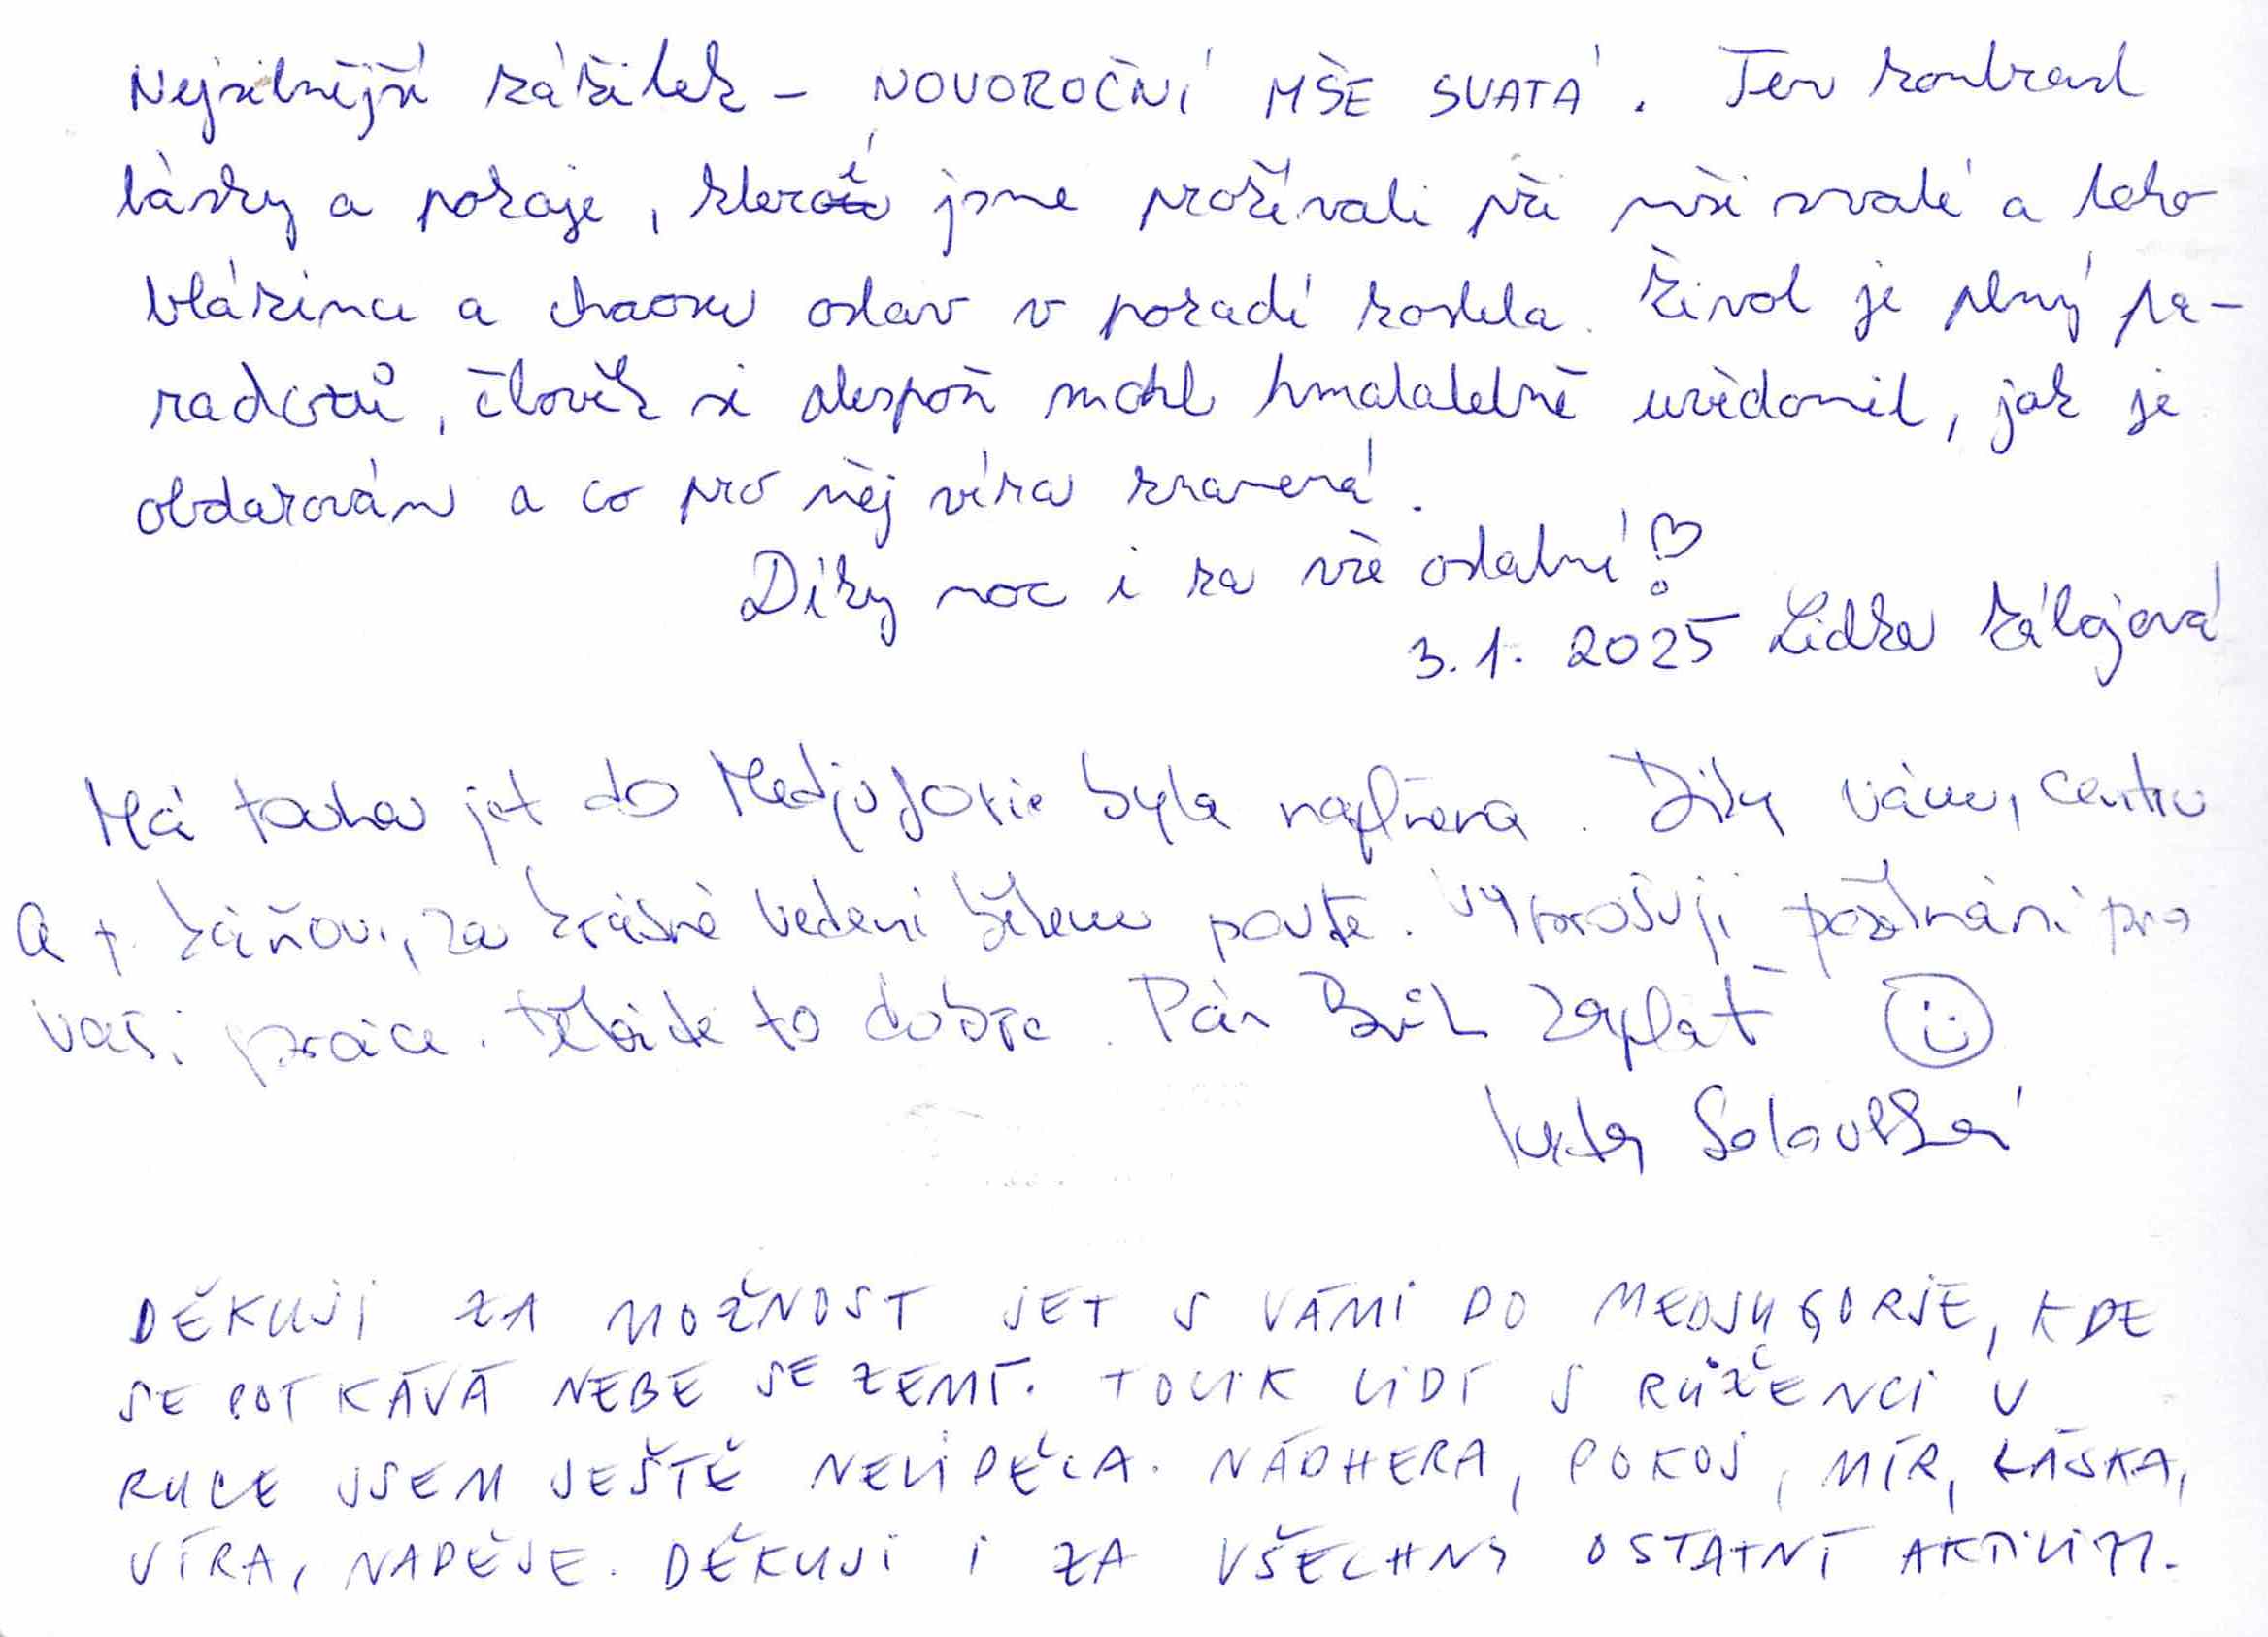 Nejsilnější zážitek – NOVOROČNÍ MŠE SVATÁ. Ten kontrast
lásky a pokoje, které jsme prožívali při mši svaté a toho
blázince a chaosu oslav v pozadí kostela. Život je plný pa-
radoxů, člověk si alespoň mohl hmatatelně uvědomit, jak je
obdarován a co pro něj víra znamená.
Díky moc i za vše ostatní!
3.1. 2025 Lidka
Má touha jet do Medjugorie byla naplněna. Díky vám, centru
a p. za krásné vedení během poutě. Vyprošuji požehnání pro
vaši práce. to dobře. Pán Bůh zaplať
DĚKUJI ZA MOŽNOST JET S VÁMI DO MEDJUGORJE, KDE
SE POTKÁVÁ NEBE SE ZEMÍ. TOLIK LIDÍ S RŮŽENCI V
RUCE JSEM JEŠTĚ NEVIDĚLA. NÁDHERA, POKOJ, MÍR, LÁSKA,
VÍRA, NADĚJE. DĚKUJI I ZA VŠECHNY OSTATNÍ AKTIVITY.